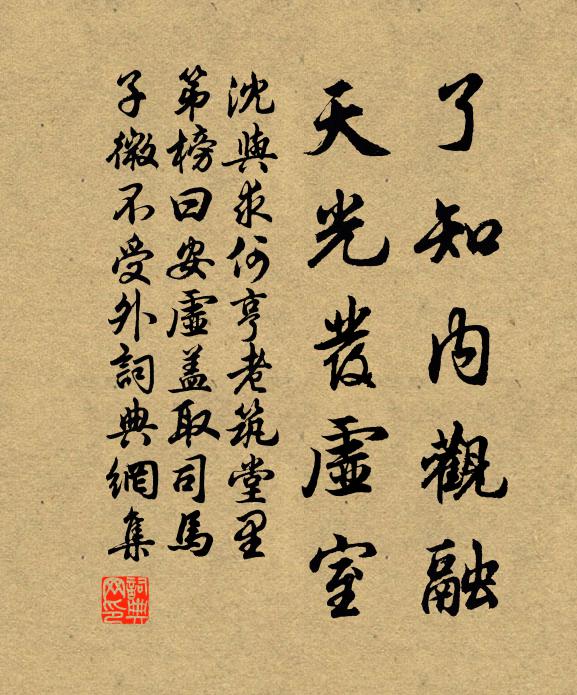 了知內觀融
天光發虛室
沈與求何亨老筑堂里
第榜曰安虛蓋取司馬
子微不受外詞典網集
詞典网印